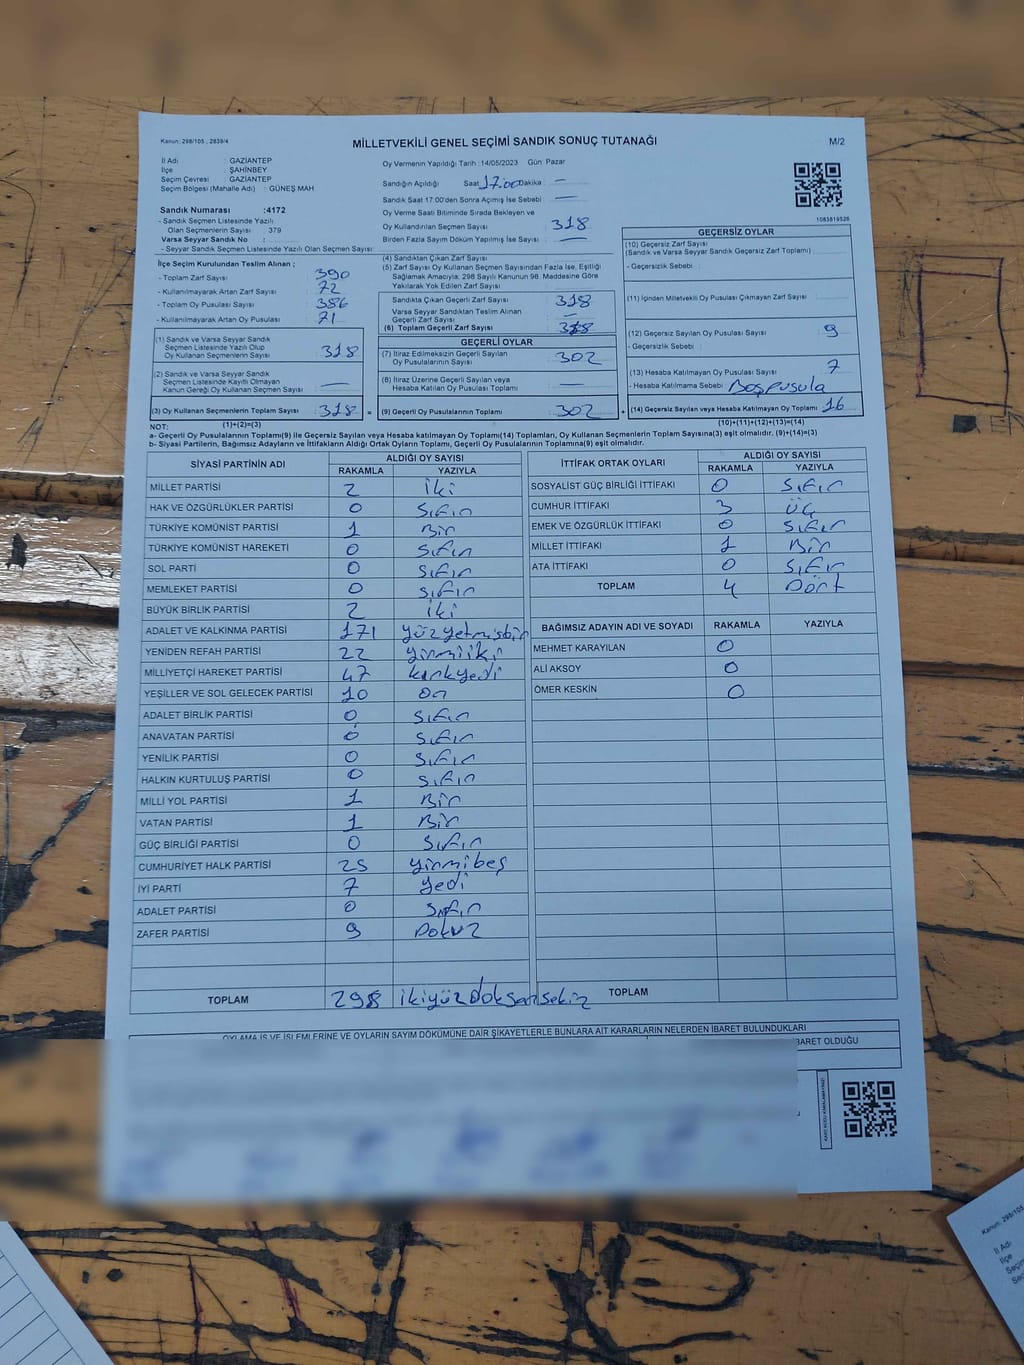 Kanun: 298/105 , 2839/4
MİLLETVEKİLİ GENEL SEÇİMİ SANDIK SONUÇ TUTANAĞI
M/2
İl Adı : GAZİANTEP
İlçe : ŞAHİNBEY
Seçim Çevresi : GAZİANTEP
Seçim Bölgesi (Mahalle Adı) : GÜNEŞ MAH
Sandık Numarası :4172
- Sandık Seçmen Listesinde Yazılı
Olan Seçmenlerin Sayısı : 379
Varsa Seyyar Sandık No :
- Seyyar Sandık Seçmen Listesinde Yazılı Olan Seçmen Sayısı:
İlçe Seçim Kurulundan Teslim Alınan ;
- Toplam Zarf Sayısı 390
- Kullanılmayarak Artan Zarf Sayısı 72
- Toplam Oy Pusulası Sayısı 386
- Kullanılmayarak Artan Oy Pusulası 71
(1) Sandık ve Varsa Seyyar Sandık
Seçmen Listesinde Yazılı Olup
Oy Kullanan Seçmenlerin Sayısı : 318
(2) Sandık ve Varsa Seyyar Sandık
Seçmen Listesinde Kayıtlı Olmayan
Kanun Gereği Oy Kullanan Seçmen Sayısı : —
(3) Oy Kullanan Seçmenlerin Toplam Sayısı : 318 =
Oy Vermenin Yapıldığı Tarih :14/05/2023 Gün: Pazar
Sandığın Açıldığı Saat 17:00 Dakika : —
Sandık Saat 17:00'den Sonra Açılmış İse Sebebi : —
Oy Verme Saati Bitiminde Sırada Bekleyen ve
Oy Kullandırılan Seçmen Sayısı : 318
Birden Fazla Sayım Döküm Yapılmış İse Sayısı : —
(4) Sandıktan Çıkan Zarf Sayısı :
(5) Zarf Sayısı Oy Kullanan Seçmen Sayısından Fazla İse, Eşitliği
Sağlamak Amacıyla; 298 Sayılı Kanunun 98. Maddesine Göre
Yakılarak Yok Edilen Zarf Sayısı :
Sandıkta Çıkan Geçerli Zarf Sayısı : 318
Varsa Seyyar Sandıktan Teslim Alınan
Geçerli Zarf Sayısı : —
(6) Toplam Geçerli Zarf Sayısı : 318
GEÇERLİ OYLAR
(7) İtiraz Edilmeksizin Geçerli Sayılan
Oy Pusulalarının Sayısı : 302
(8) İtiraz Üzerine Geçerli Sayılan veya
Hesaba Katılan Oy Pusulası Toplamı : —
(9) Geçerli Oy Pusulalarının Toplamı : 302 +
1083819526
GEÇERSİZ OYLAR
(10) Geçersiz Zarf Sayısı
(Sandık ve Varsa Seyyar Sandık Geçersiz Zarf Toplamı)
- Geçersizlik Sebebi :
(11) İçinden Milletvekili Oy Pusulası Çıkmayan Zarf Sayısı :
(12) Geçersiz Sayılan Oy Pusulası Sayısı : 9
- Geçersizlik Sebebi :
(13) Hesaba Katılmayan Oy Sayısı : 7
- Hesaba Katılmama Sebebi : Boş pusula
(14) Geçersiz Sayılan veya Hesaba Katılmayan Oy Toplamı : 16
NOT: (1)+(2)=(3) (10)+(11)+(12)+(13)=(14)
a- Geçerli Oy Pusulalarının Toplamı(9) ile Geçersiz Sayılan veya Hesaba katılmayan Oy Toplamı(14) Toplamları, Oy Kullanan Seçmenlerin Toplam Sayısına(3) eşit olmalıdır. (9)+(14)=(3)
b- Siyasi Partilerin, Bağımsız Adayların ve İttifakların Aldığı Ortak Oyların Toplamı, Geçerli Oy Pusulalarının Toplamına(9) eşit olmalıdır.
SİYASİ PARTİNİN ADI ALDIĞI OY SAYISI
RAKAMLA YAZIYLA
MİLLET PARTİSİ 2 iki
HAK VE ÖZGÜRLÜKLER PARTİSİ 0 Sıfır
TÜRKİYE KOMÜNİST PARTİSİ 1 Bir
TÜRKİYE KOMÜNİST HAREKETİ 0 Sıfır
SOL PARTİ 0 Sıfır
MEMLEKET PARTİSİ 0 Sıfır
BÜYÜK BİRLİK PARTİSİ 2 iki
ADALET VE KALKINMA PARTİSİ 171 yüzyetmişbir
YENİDEN REFAH PARTİSİ 22 yirmiiki
MİLLİYETÇİ HAREKET PARTİSİ 47 kırkyedi
YEŞİLLER VE SOL GELECEK PARTİSİ 10 on
ADALET BİRLİK PARTİSİ 0 Sıfır
ANAVATAN PARTİSİ 0 Sıfır
YENİLİK PARTİSİ 0 Sıfır
HALKIN KURTULUŞ PARTİSİ 0 Sıfır
MİLLİ YOL PARTİSİ 1 Bir
VATAN PARTİSİ 1 Bir
GÜÇ BİRLİĞİ PARTİSİ 0 Sıfır
CUMHURİYET HALK PARTİSİ 25 yirmibeş
İYİ PARTİ 7 yedi
ADALET PARTİSİ 0 Sıfır
ZAFER PARTİSİ 9 Dokuz
TOPLAM 298 ikiyüzdoksansekiz
İTTİFAK ORTAK OYLARI ALDIĞI OY SAYISI
RAKAMLA YAZIYLA
SOSYALİST GÜÇ BİRLİĞİ İTTİFAKI 0 Sıfır
CUMHUR İTTİFAKI 3 üç
EMEK VE ÖZGÜRLÜK İTTİFAKI 0 Sıfır
MİLLET İTTİFAKI 1 Bir
ATA İTTİFAKI 0 Sıfır
TOPLAM 4 Dört
BAĞIMSIZ ADAYIN ADI VE SOYADI RAKAMLA YAZIYLA
MEHMET KARAYILAN 0
ALİ AKSOY 0
ÖMER KESKİN 0
TOPLAM
OYLAMA İŞ VE İŞLEMLERİNE VE OYLARIN SAYIM DÖKÜMÜNE DAİR ŞİKAYETLERLE BUNLARA AİT KARARLARIN NELERDEN İBARET BULUNDUKLARI
BARET OLDUĞU
Kanun: 298/105
İl Adı
İlçe